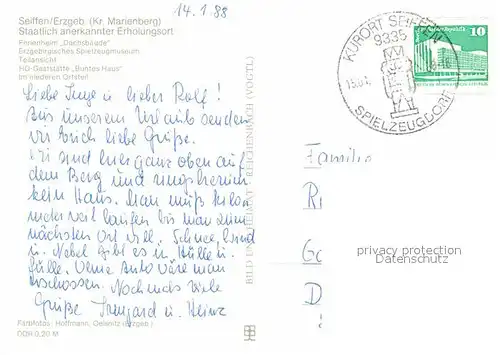 14.1.88
Seiffen/Erzgeb (Kr. Marienberg)
Staatlich anerkannter Erholungsort
Ferienheim „Dachsbaude"
Erzgebirgisches Spielzeugmuseum
Teilansicht
HO-Gaststätte „Buntes Haus"
Im niederen Ortsteil
KURORT SEIFFEN
9335
SPIELZEUGDORF
10
Liebe Inge u. lieber Rolf!
Aus unserem Urlaub senden
wir Euch liebe Grüße.
Wir sind hier ganz oben auf
dem Berg und ringsherum
kein Haus. Man muß kilom
weit laufen bis man zum
nächsten Ort will. Schnee, Wind
u. Nebel gibt es in Hülle u.
Fülle. Ohne Auto wäre man
erschossen. Nochmals viele
Grüße Irmgard u. Heinz
Familie
R
G
D
privacy protection
Datenschutz
BILD UND HEIMAT REICHENBACH (VOGTL)
Farbfotos: Hoffmann, Oelsnitz (Erzgeb.)
DDR 0,20 M